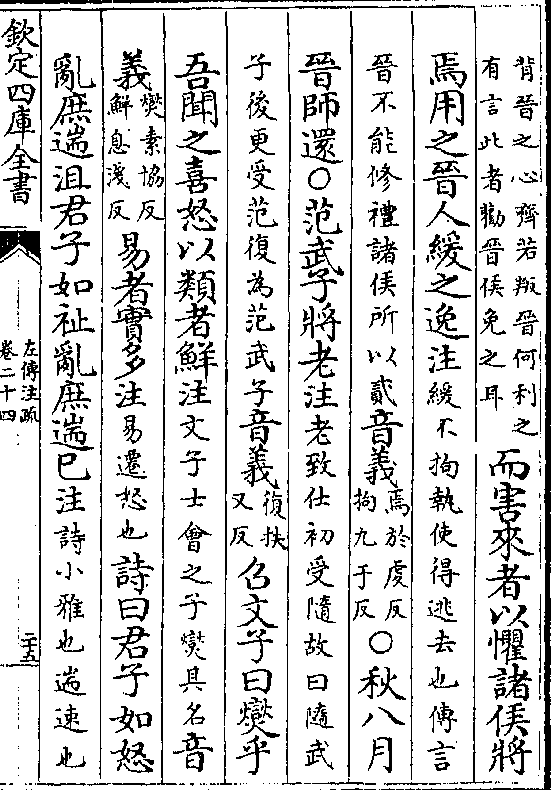 背晉之心齊若叛晉何利之
有言此者勸晉侯免之耳
而害來者以懼諸侯將
焉用之晉人緩之逸注緩不拘執使得逃去也傳言
晉不能修禮諸侯所以貳音義焉於虔反
拘九于反
○秋八月
晉師還○范武子將老注老致仕初受隨故曰隨武
子後更受范復為范武子音義復扶
又反
召文子曰燮乎
吾聞之喜怒以類者鮮注文子士會之子燮其名音
義燮素協反
鮮息淺反
易者實多注易遷怒也詩曰君子如怒
亂庶遄沮君子如祉亂庶遄已注詩小雅也遄速也
欽定四庫全書
左傳注疏
卷二十四
二十五